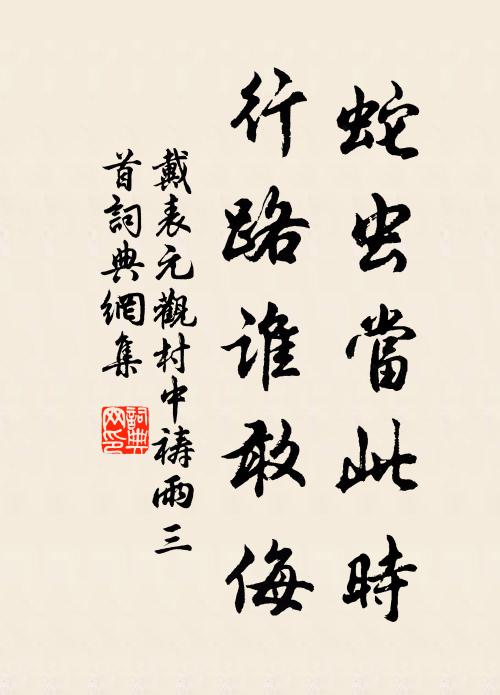 蛇虫當此時
行路誰敢侮
戴表元觀村中禱雨三
首詞典網集
詞典
网印